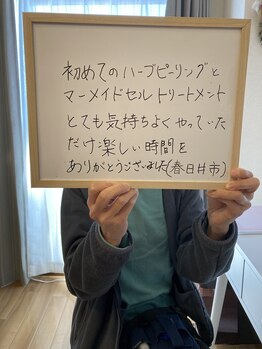 初めてのハーブピーリングと
マーメイドセルトリートメント
とても気持ちよくやっていた
だけ楽しい時間を
ありがとうございました(春日井市)